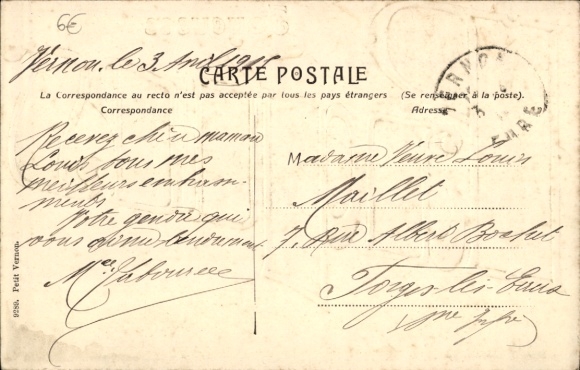 6€
Vernon, le 3 Avril
CARTE POSTALE
La Correspondance au recto n'est pas acceptée par tous les pays étrangers (Se renseigner à la poste).
Correspondance
Adresse
VERNON
3
EURE
Recevez chère maman
Louis tous mes
meilleurs embrasse-
ments
Votre gendre qui
vous aime tendrement
Madame Veuve Louis
Maillet
7, Rue Albert Bochet
Forges-les-Eaux
Sne Infre
9280. Petit Vernon.